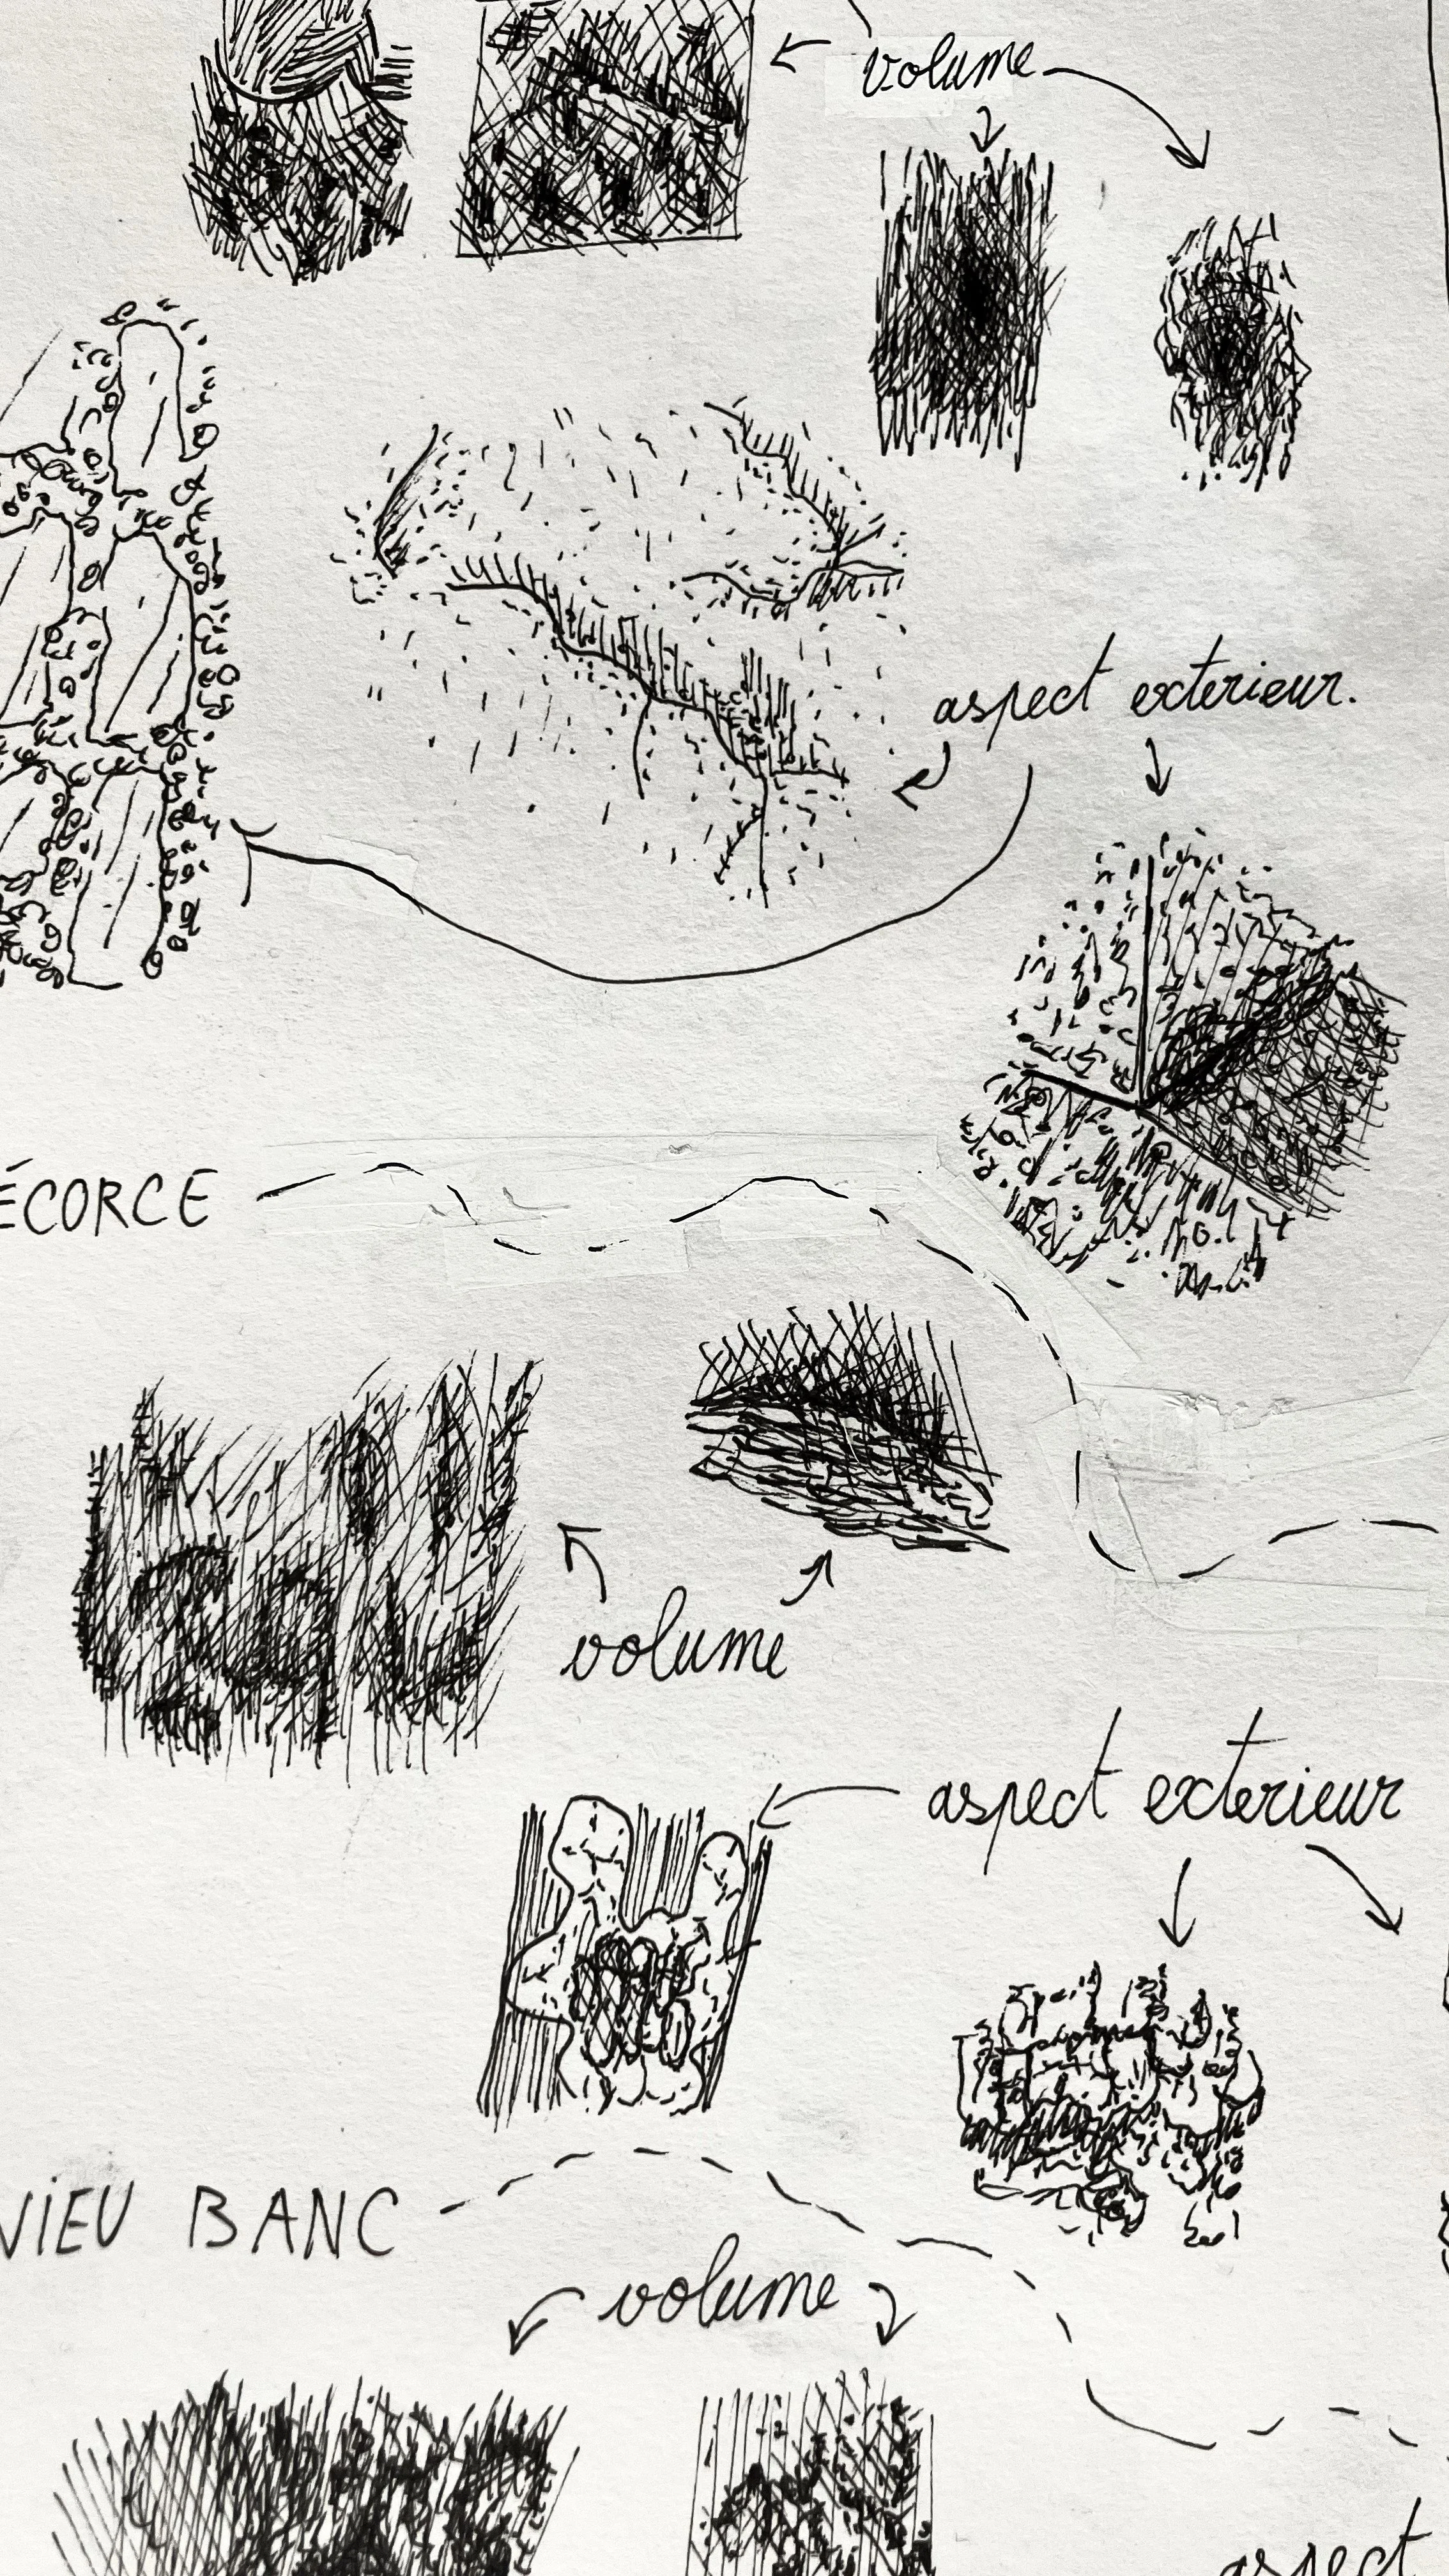 volume
aspect exterieur.
ÉCORCE
volume
aspect exterieur
VIEU BANC
volume
aspect